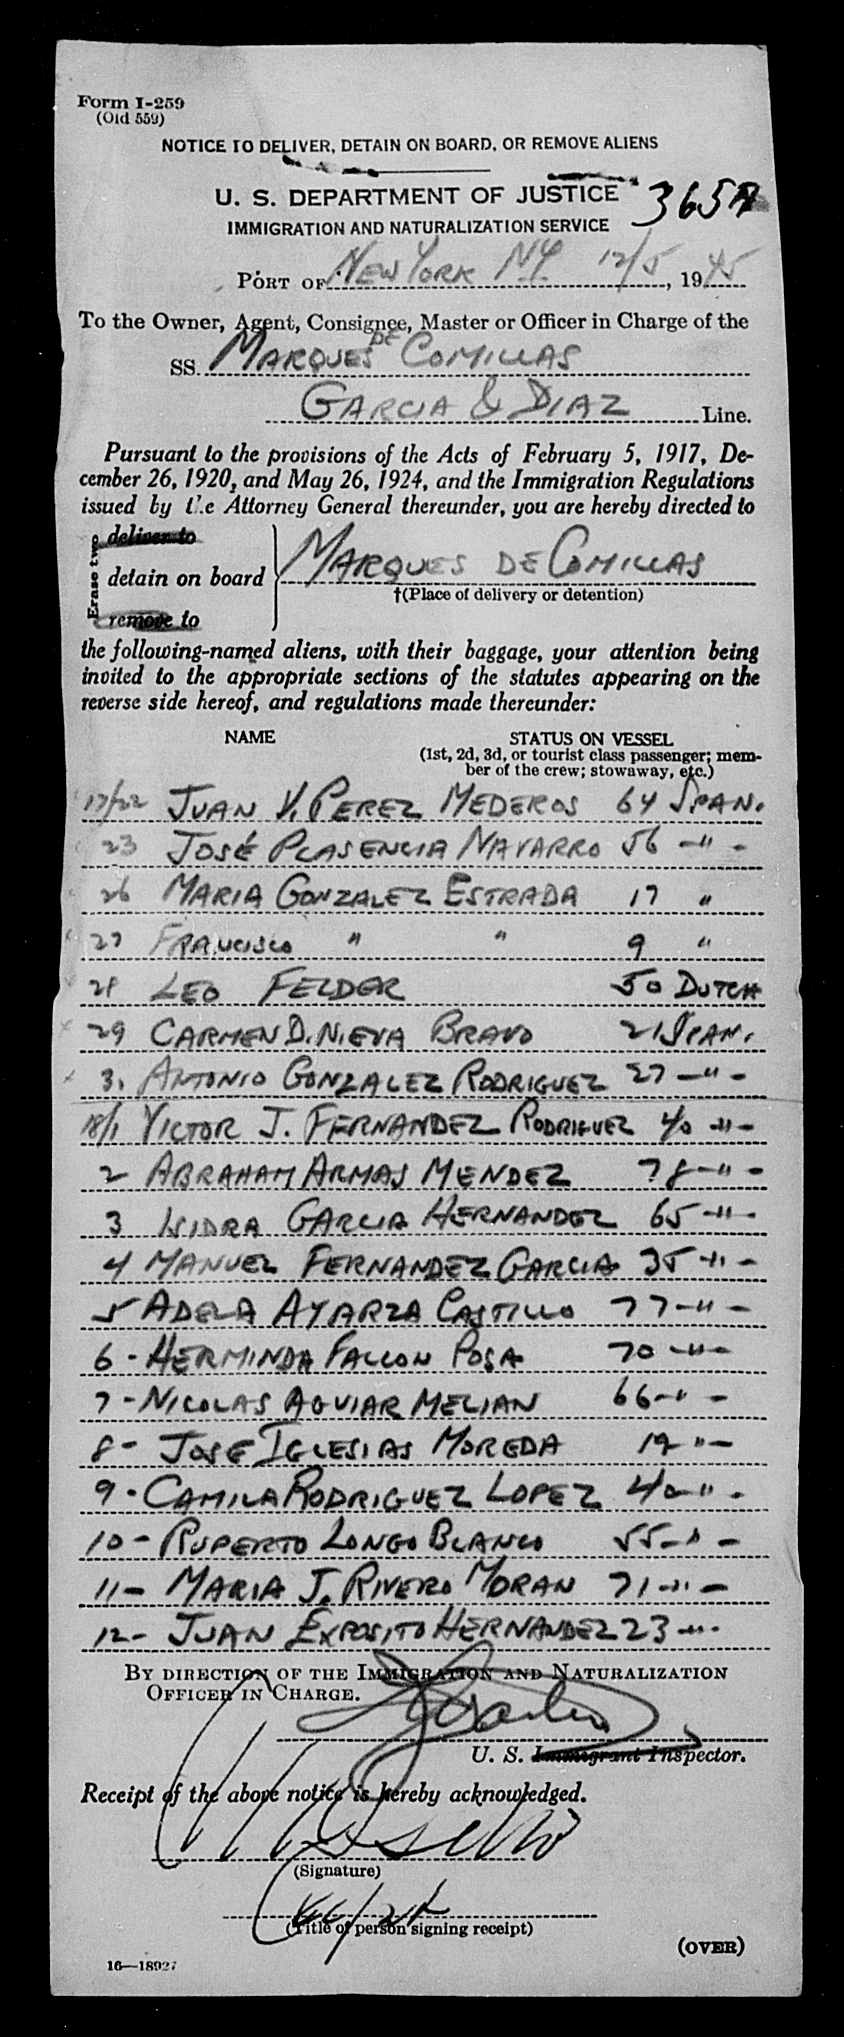 Form I-259
(Old 559)
NOTICE TO DELIVER, DETAIN ON BOARD, OR REMOVE ALIENS
U. S. DEPARTMENT OF JUSTICE
365A
IMMIGRATION AND NATURALIZATION SERVICE
PORT OF NEW YORK NY 12/5, 1945
To the Owner, Agent, Consignee, Master or Officer in Charge of the
SS. MARQUES DE COMILLAS
GARCIA & DIAZ Line.
Pursuant to the provisions of the Acts of February 5, 1917, De-
cember 26, 1920, and May 26, 1924, and the Immigration Regulations
issued by the Attorney General thereunder, you are hereby directed to
Erase two
deliver to
detain on board MARQUES DE COMILLAS
†(Place of delivery or detention)
remove to
the following-named aliens, with their baggage, your attention being
invited to the appropriate sections of the statutes appearing on the
reverse side hereof, and regulations made thereunder:
NAME STATUS ON VESSEL
(1st, 2d, 3d, or tourist class passenger; mem-
ber of the crew; stowaway, etc.)
17/22 JUAN V. PEREZ MEDEROS 64 SPAN.
23 JOSÉ PLASENCIA NAVARRO 56 -"-
26 MARIA GONZALEZ ESTRADA 17 "
27 FRANCISCO " " 9 "
28 LEO FELDER 50 DUTCH
29 CARMEN D. NIEVA BRAVO 21 SPAN.
3. ANTONIO GONZALEZ RODRIGUEZ 27 -"-
18/1 VICTOR J. FERNANDEZ RODRIGUEZ 40 -"-
2 ABRAHAM ARMAS MENDEZ 78 -"-
3 ISIDRA GARCIA HERNANDEZ 65 -"-
4 MANUEL FERNANDEZ GARCIA 35 -"-
5 ADELA AYARZA CASTILLO 77 -"-
6 - HERMINDA FALCON POSA 70 -"-
7 - NICOLAS AGUIAR MELIAN 66 -"-
8 - JOSE IGLESIAS MOREDA 19 "-
9 - CAMILA RODRIGUEZ LOPEZ 40 -"-
10 - RUPERTO LONGO BLANCO 55 -"-
11 - MARIA J. RIVERO MORAN 71 -"-
12 - JUAN EXPOSITO HERNANDEZ 23 -"-
BY DIRECTION OF THE IMMIGRATION AND NATURALIZATION
OFFICER IN CHARGE.
U. S. Immigrant Inspector.
Receipt of the above notice is hereby acknowledged.
(Signature)
(Title of person signing receipt)
(OVER)
16—18927